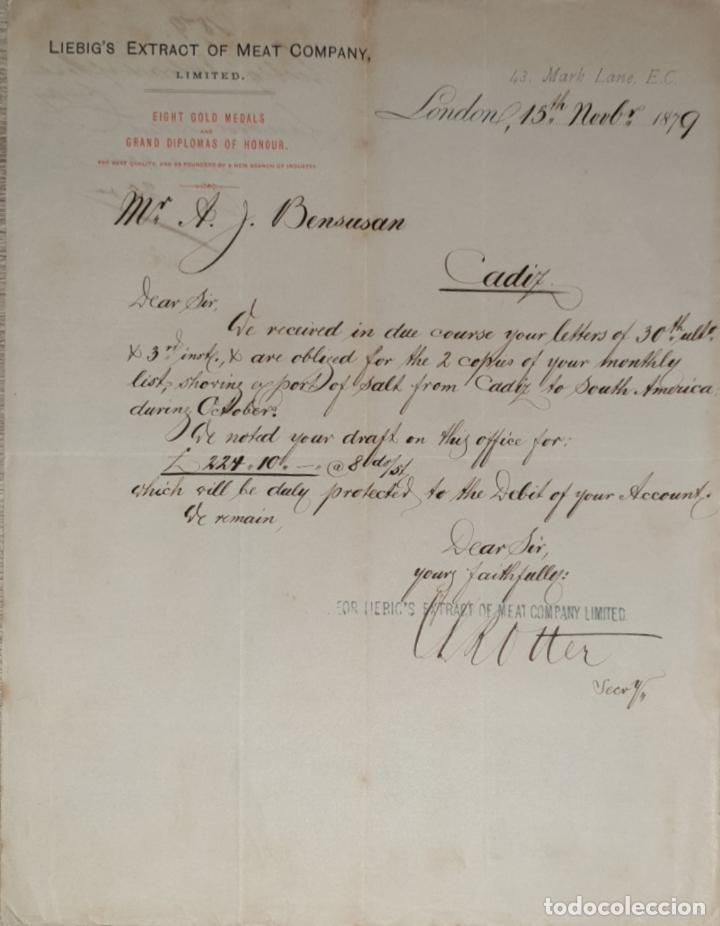 LIEBIG'S EXTRACT OF MEAT COMPANY,
LIMITED.
43, Mark Lane, E.C.
EIGHT GOLD MEDALS
AND
GRAND DIPLOMAS OF HONOUR.
FOR BEST QUALITY, AND AS FOUNDERS OF A NEW BRANCH OF INDUSTRY.
London, 15th Novbr. 1879
Mr A. J. Bensusan
Cadiz.
Dear Sir,
We received in due course your letters of 30th ulto.
& 3rd inst., & are obliged for the 2 copies of your monthly
list, showing export of salt from Cadiz to South America
during October.
We noted your draft on this office for:
£ 224.10.— @ 8 d/st
which will be duly protected to the Debit of your Account.
We remain,
Dear Sir,
yours faithfully:
FOR LIEBIG'S EXTRACT OF MEAT COMPANY LIMITED.
Otter
Secry.
todocoleccion